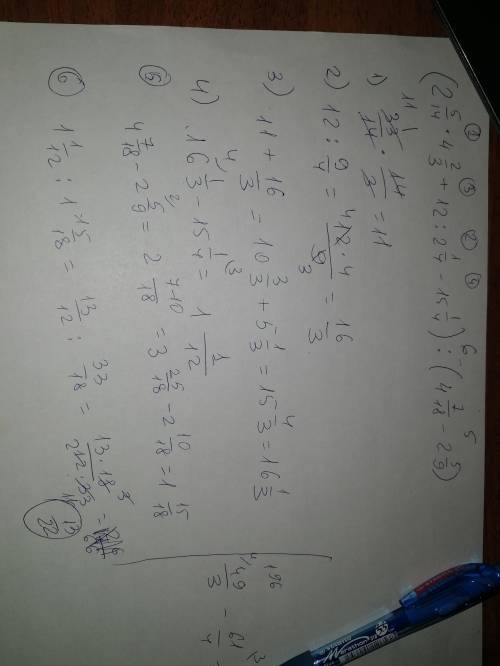 ① ③ ② ④ 6 5
(2 5/14 · 4 2/3 + 12 : 2 1/4 - 15 1/4) : (4 7/18 - 2 5/9)
1) 33/14 · 14/3 = 11
2) 12 : 9/4 = 12·4/9 = 16/3
3) 11 + 16/3 = 10 3/3 + 5 1/3 = 15 4/3 = 16 1/3
4) 16 1/3 - 15 1/4 = 1 1/12
⑤ 4 7/18 - 2 5/9 = 2 7-10/18 = 3 25/18 - 2 10/18 = 1 15/18
⑥ 1 1/12 : 1 15/18 = 13/12 : 33/18 = 13·18/12·33 = 13/22
49/3 - 61/4
196